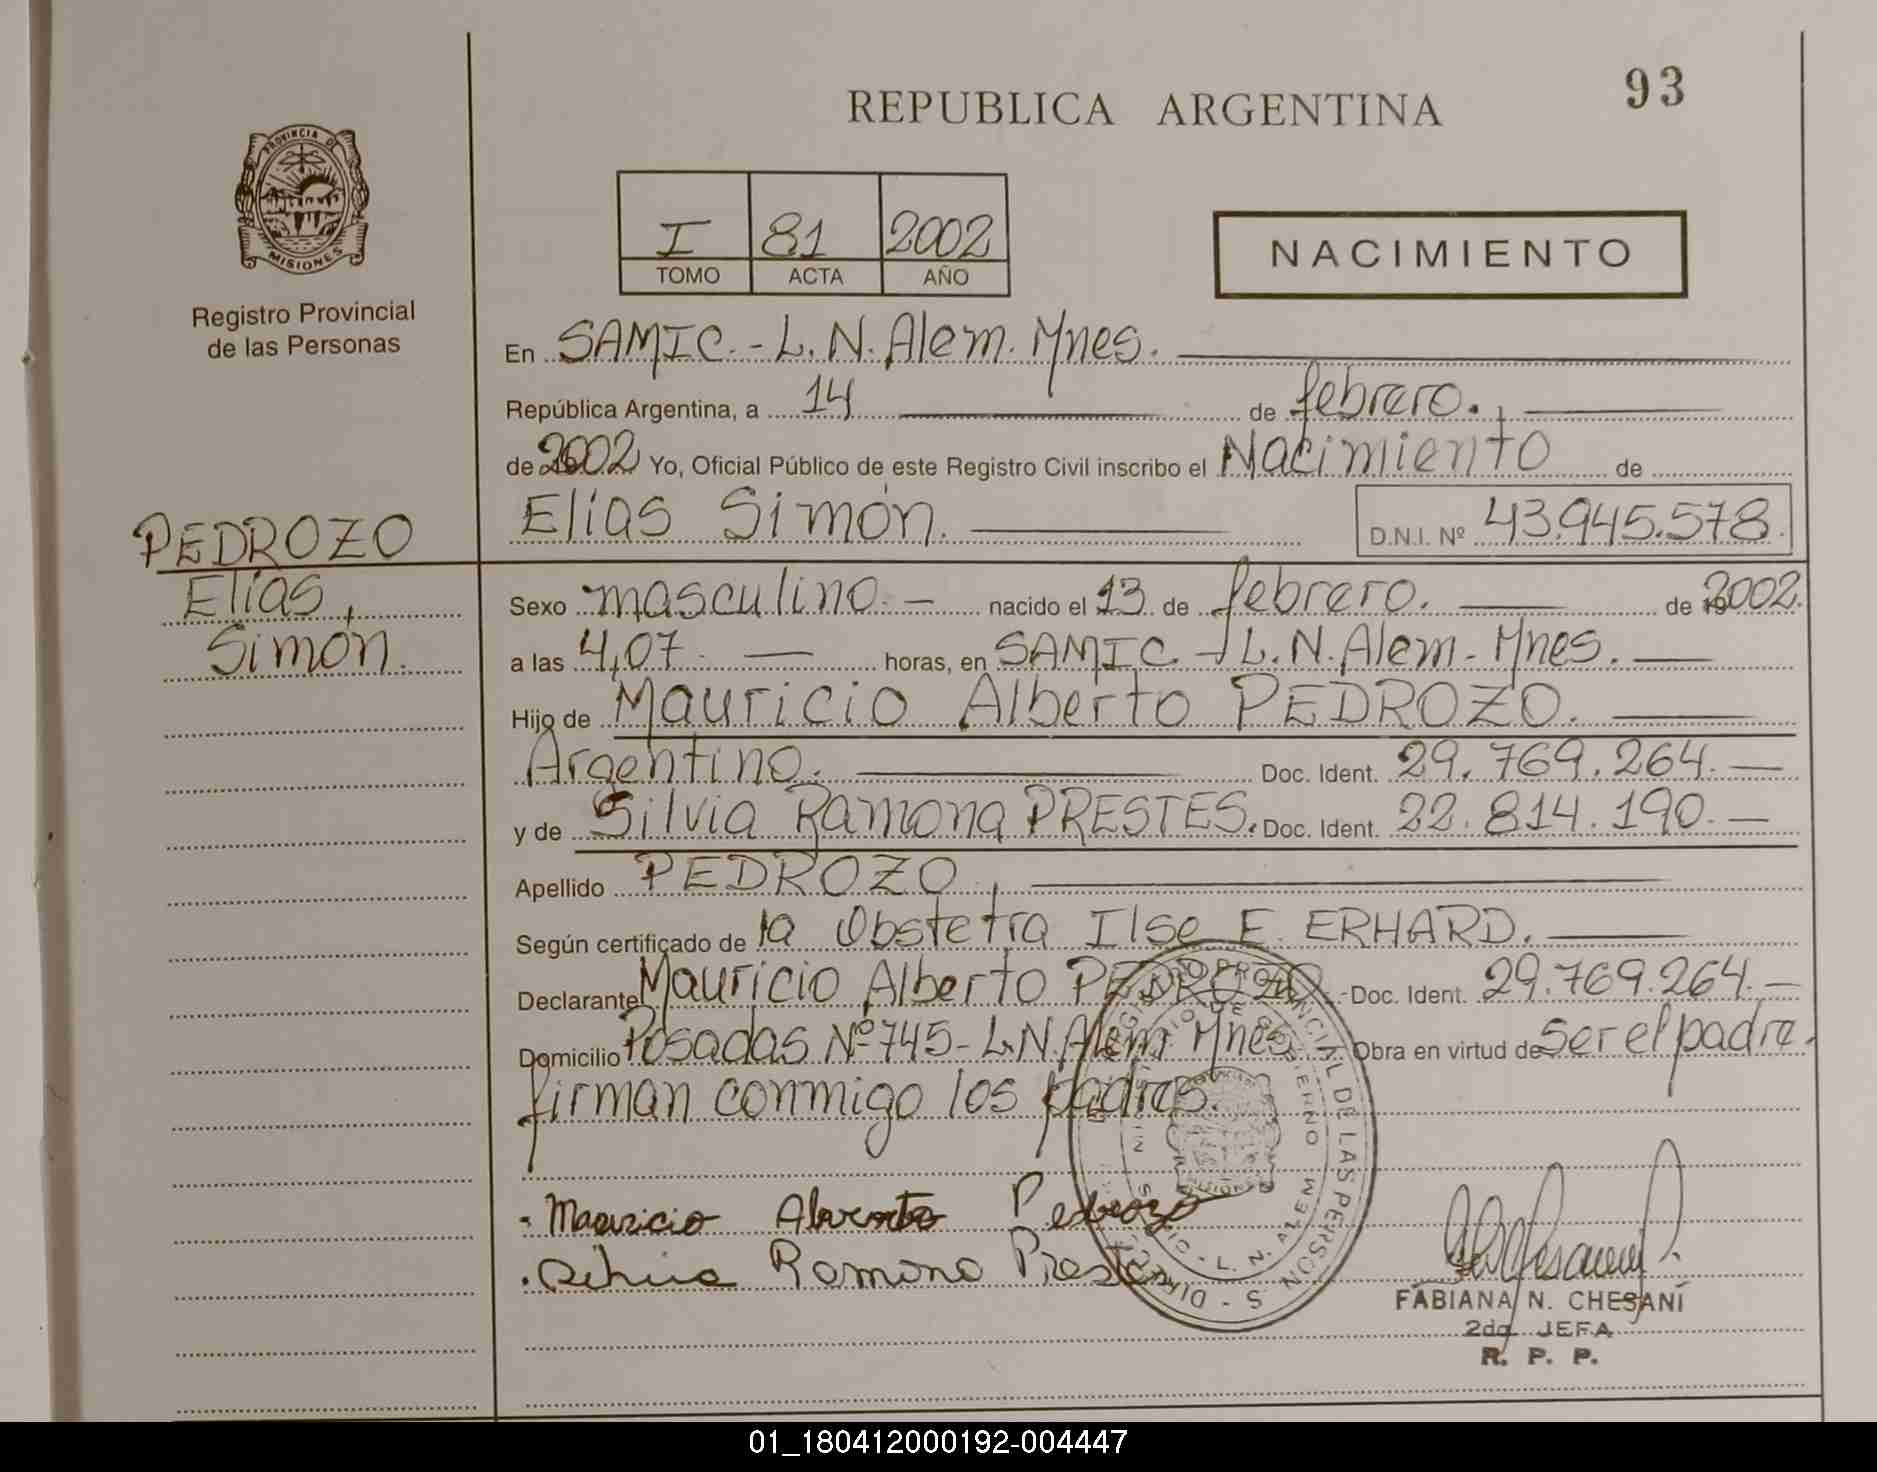 93
REPUBLICA ARGENTINA
PROVINCIA DE
MISIONES
Registro Provincial
de las Personas
I 81 2002
TOMO ACTA AÑO
NACIMIENTO
En SAMIC.- L. N. Alem. Mnes.
República Argentina, a 14 de febrero.
de 2002 Yo, Oficial Público de este Registro Civil inscribo el Nacimiento de
Elías Simón. D.N.I. Nº 43.945.578.
PEDROZO
Elías,
Simón.
Sexo masculino.- nacido el 13 de febrero. de 2002.
a las 4,07. horas, en SAMIC.- L. N. Alem - Mnes.
Hijo de Mauricio Alberto PEDROZO.
Argentino. Doc. Ident. 29.769.264.-
y de Silvia Ramona PRESTES. Doc. Ident. 22.814.190.-
Apellido PEDROZO.
Según certificado de la Obstetra Ilse E. ERHARD.
Declarante Mauricio Alberto PEDROZO.- Doc. Ident. 29.769.264.-
Domicilio Posadas Nº 745 - L. N. Alem Mnes. Obra en virtud de ser el padre.
firman conmigo los padres.
Mauricio Alverto Pedrozo
Ramona Prestes
FABIANA N. CHESANÍ
2da. JEFA
R. P. P.
01_180412000192-004447